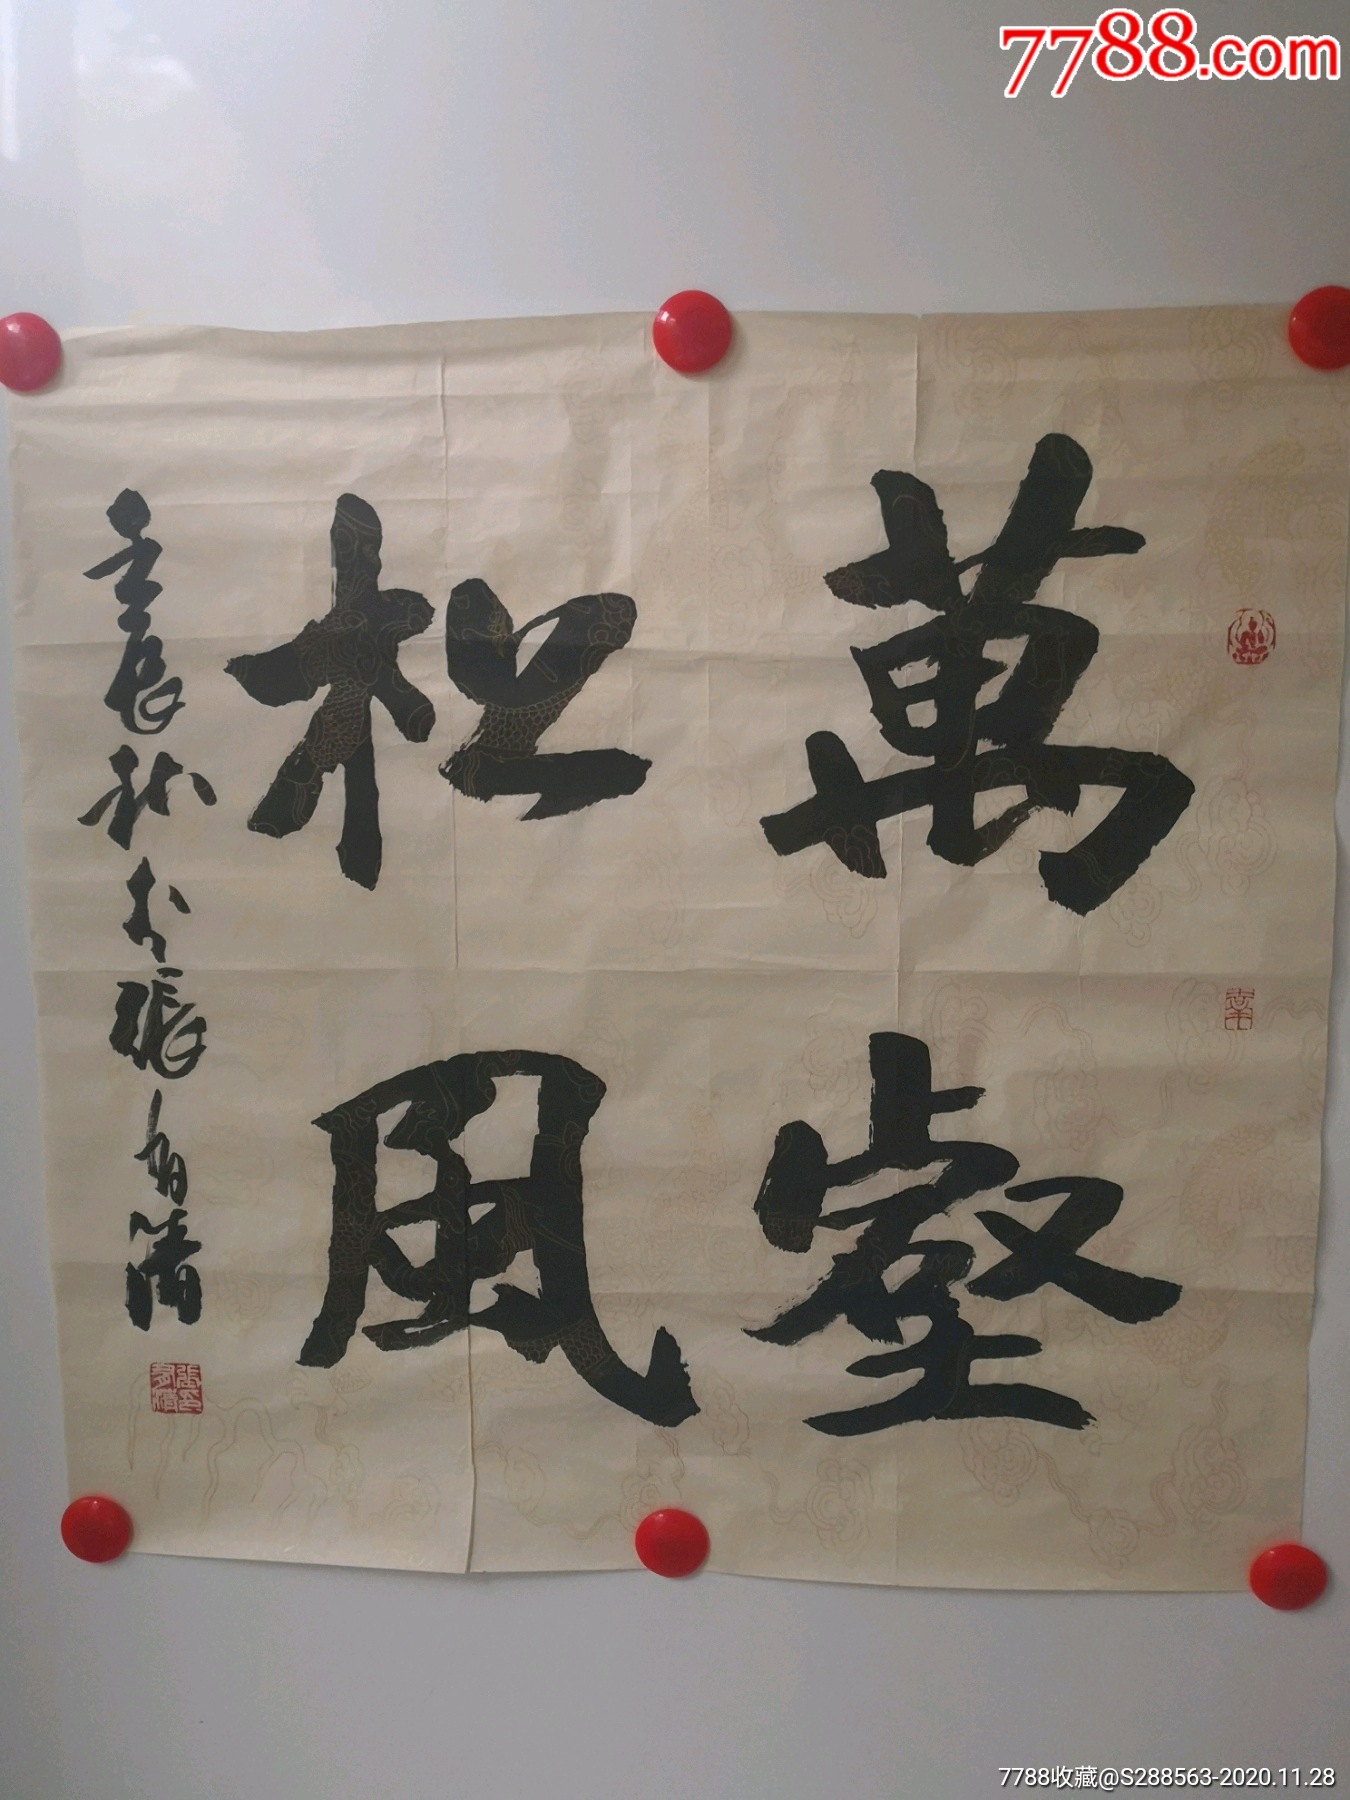 7788.com
萬壑
松風
壬辰秋月張有清
張有清印
7788收藏@S288563-2020.11.28